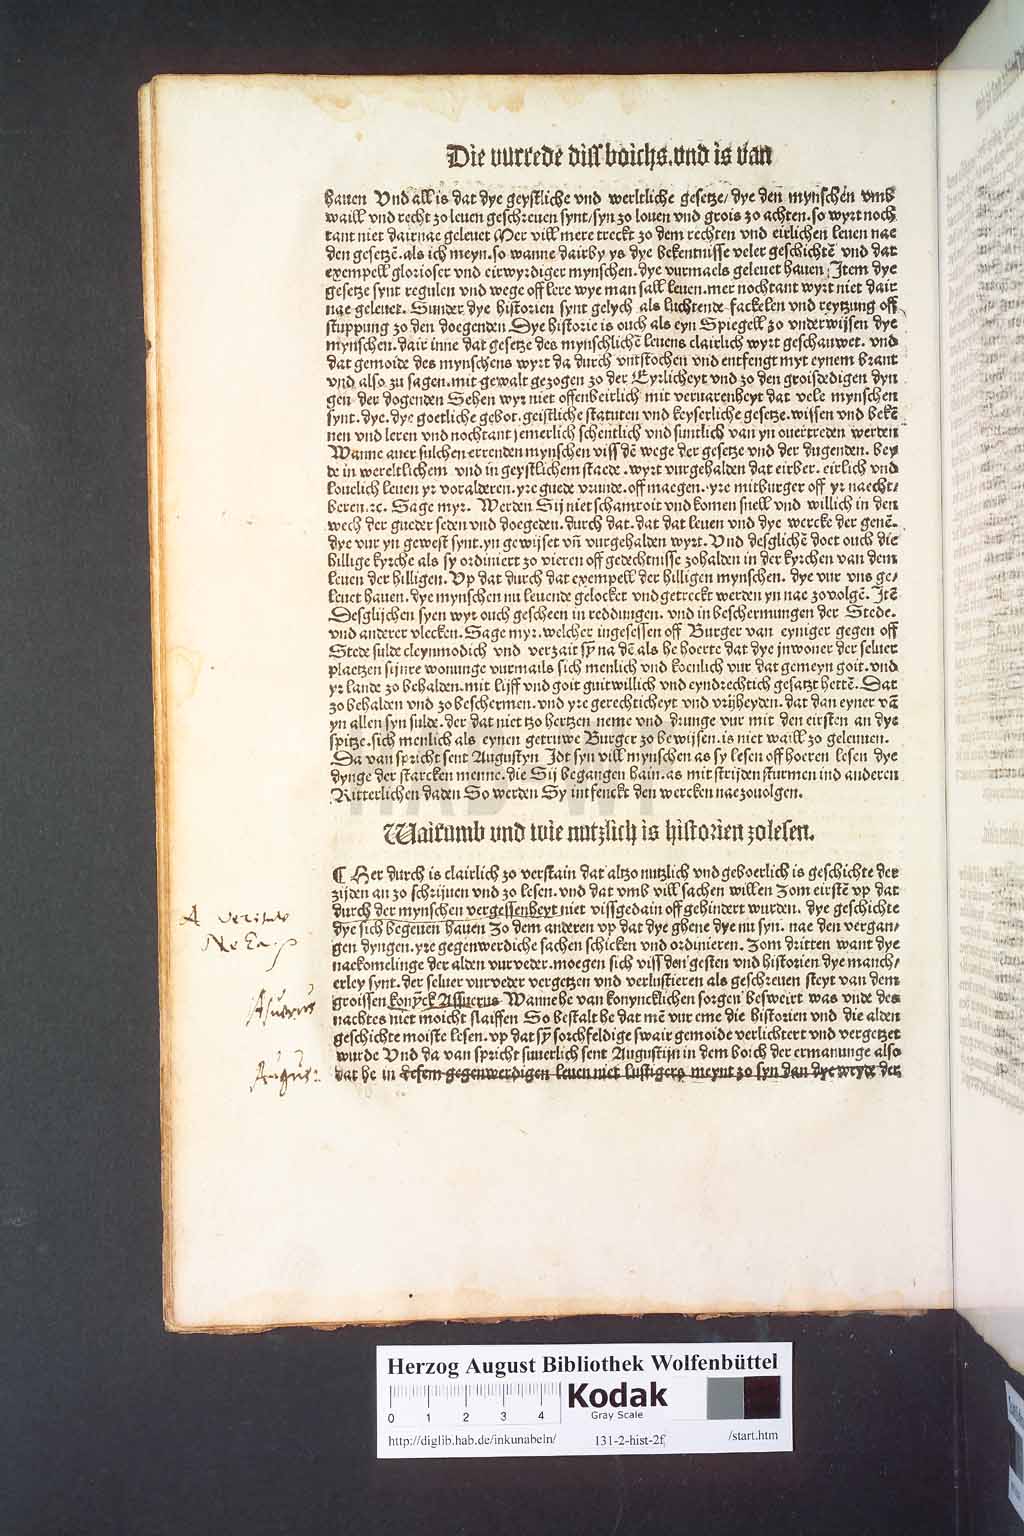 Die vurrede diss boichs.vnd is van
hauen Vnd all is dat dye geystliche vnd werltliche gesetze/ dye den mynschen vmb
waill vnd recht zo leuen geschreuen synt/syn zo louen vnd grois zo achten.so wyrt noch
tant niet dairnae geleuet Mer vill mere treckt zo dem rechten vnd eirlichen leuen nae
den gesetzē.als ich meyn.so wanne dairby ys dye bekentnisse veler geschichtē vnd dat
exempell glorioser vnd eirwyrdiger mynschen.dye vurmaels geleuet hauen Item dye
gesetze synt regulen vnd wege off lere wye man sall leuen.mer nochtant wyrt niet dair
nae geleuet. Sunder dye historien synt gelych als luchtende fackelen vnd reytzung off
stuppung zo den doegenden Dye historie is ouch als eyn Spiegell zo vnderwijsen dye
mynschen.dair inne dat gesetze des mynschlichē leuens clairlich wyrt geschauwet. vnd
dat gemoide des mynschens wyrt da durch vntstochen vnd entfengt myt eynem brant
vnd also zu sagen.mit gewalt gezogen zo der Eyrlicheyt vnd zo den groisdedigen dyn
gen der dogenden Sehen wyr niet offenbeirlich mit veruarenheyt dat vele mynschen
synt.dye.dye goetliche gebot.geistliche statuten vnd keyserliche gesetze.wijsen vnd bekē
nen vnd leren vnd nochtant jemerlich schentlich vnd suntlich van yn ouertreden werden
Wanne auer sulchen errenden mynschen viss dē wege der gesetze vnd der dugenden. bey
de in wereltlichem vnd in geystlichem staede.wyrt vurgehalden dat eirber. eirlich vnd
louelich leuen yr voralderen.yre guede vrunde.off maegen.yre mitburger off yr naecht-
beren.rc. Sage myr. Werden Sij niet schamroit vnd komen snell vnd willich in den
wech der gueder seden vnd doegeden.durch dat.dat dat leuen vnd dye wercke der genē.
dye vur yn gewest synt.yn gewijset vn̄ vurgehalden wyrt. Vnd desglichē doet ouch die
hillige kyrche als sy ordiniert zo vieren off gedechtnisse zohalden in der kyrchen van dem
leuen der hilligen. Vp dat durch dat exempell der hilligen mynschen. dye vur vns ge-
leuet hauen.dye mynschen nu leuende gelocket vnd getreckt werden yn nae zo volgē. Itē
Desglijchen syen wyr ouch gescheen in reddungen. vnd in beschermungen der Stede.
vnd anderer vlecken.Sage myr.welcher ingesessen off Burger van eyniger gegen off
Stede sulde cleynmodich vnd verzait sȳ na dē als he hoerte dat dye jnwoner der seluer
plaetzen sijnre wonunge vurmails sich menlich vnd koenlich vur dat gemeyn goit.vnd
yr lande zo behalden.mit lijff vnd goit guitwillich vnd eyndrechtich gesatzt hettē. Dat
zo behalden vnd zo beschermen.vnd yre gerechticheyt vnd vrijheyden.dat dan eyner vā
yn allen syn sulde.der dat niet tzo hertzen neme vnd drunge vur mit den eirsten an dye
spitze.sich menlich als eynen getruwe Burger zo bewijsen.is niet waill zo geleuuen.
Da van spricht sent Augustyn Idt syn vill mynschen as sy lesen off hoeren lesen dye
dynge der starcken menne.die Sij begangen hain.as mit strijden sturmen ind anderen
Ritterlichen daden So werden Sy intfenckt den wercken nae zouolgen.
Wairumb vnd wie nutzlich is historien zolesen.
¶ Her durch is clairlich zo verstain dat altzo nutzlich vnd geboerlich is geschichte der
zijden an zo schrijuen vnd zo lesen.vnd dat vmb vill sachen willen Zom eirstē vp dat
durch der mynschen vergessenheyt niet vissgedain off gehindert wurden. dye geschichte
dye sich begeuen hauen Zo dem anderen vp dat dye ghene dye nu syn. nae den vergan-
gen dyngen.yre gegenwerdiche sachen schicken vnd ordinieren. Zom dritten want dye
naekomelinge der alden vurveder.moegen sich viss den gesten vnd historien dye manch-
erley synt.der seluer vurveder vergetzen vnd verlustieren als geschreuen steyt van dem
groissen konyck Assuerus Wanne he van konyncklichen sorgen besweirt was vnde des
nachtes niet moicht slaiffen So bestalt he dat mē vur eme die historien vnd die alden
geschichte moiste lesen.vp dat sȳ sorchfeldige swair gemoide verlichtert vnd vergetzet
wurde Vnd da van spricht suuerlich sent Augustijn in dem boich der ermanunge also
dat he in desem gegenwerdigen leuen niet lustigers meynt zo syn dan dye weyde der
Asuerus
Augus:
Herzog August Bibliothek Wolfenbüttel
0 1 2 3 4
Kodak
Gray Scale
http://diglib.hab.de/inkunabeln/ 131-2-hist-2f, /start.htm